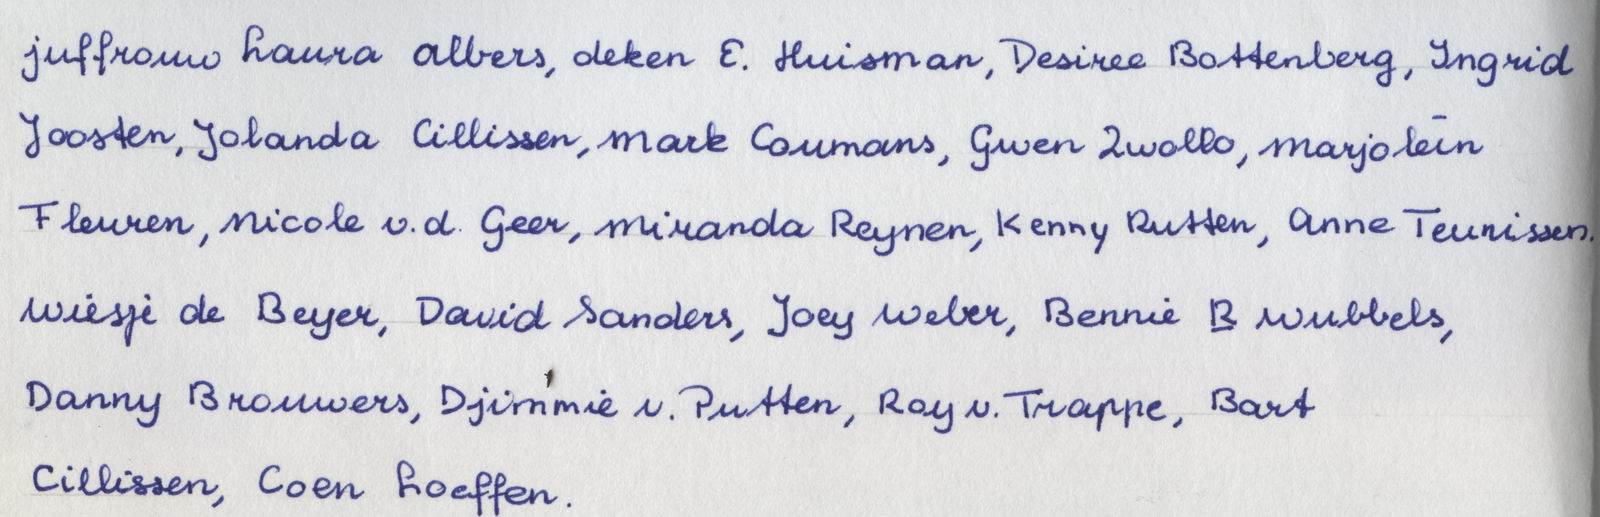 juffrouw Laura Albers, deken E. Huisman, Desiree Bottenberg, Ingrid
Joosten, Jolanda Cillissen, Mark Coumans, Gwen Zwollo, Marjolein
Fleuren, Nicole v.d. Geer, Miranda Reynen, Kenny Rutten, Anne Teunissen.
Wiesje de Beyer, David Sanders, Joey Weber, Bennie B Wubbels,
Danny Brouwers, Djimmie v. Putten, Roy v. Trappe, Bart
Cillissen, Coen Loeffen.